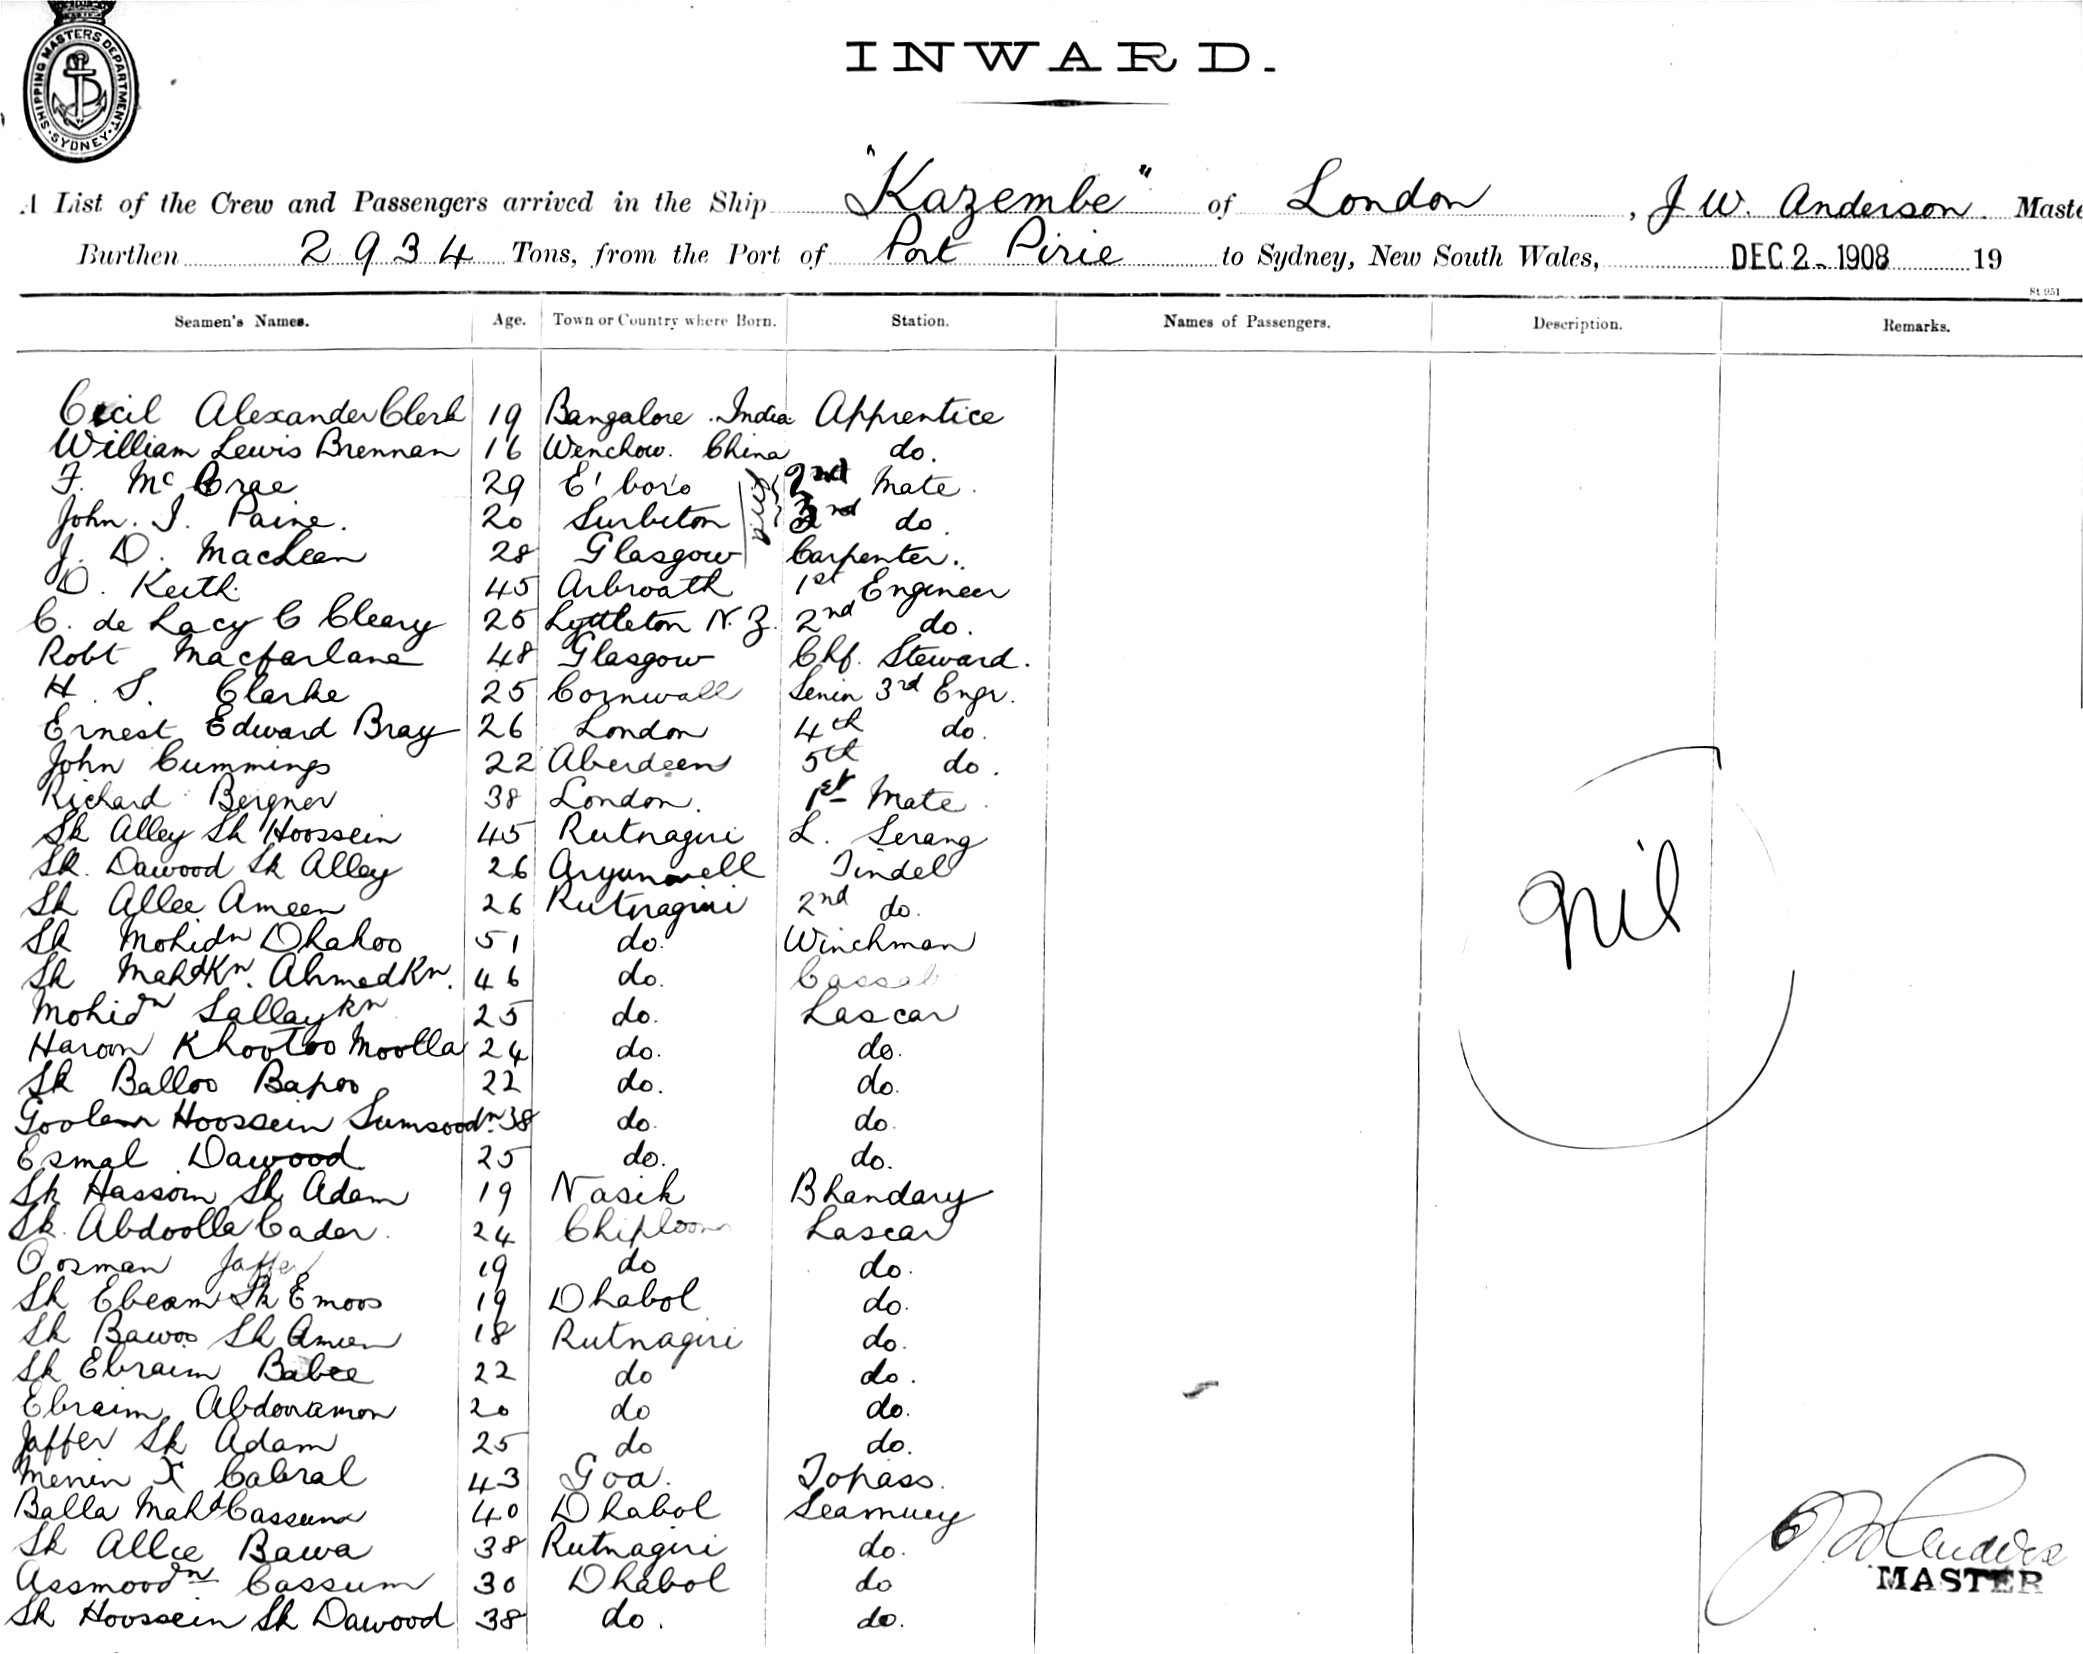 SHIPPING MASTERS DEPARTMENT. SYDNEY
INWARD.
A List of the Crew and Passengers arrived in the Ship "Kazembe" of London, J W. Anderson. Maste
Burthen 2934 Tons, from the Port of Port Pirie to Sydney, New South Wales, DEC 2 - 1908 19
St 951
Seamen's Names. Age. Town or Country where Born. Station. Names of Passengers. Description. Remarks.
Cecil Alexander Clerk 19 Bangalore. India Apprentice
William Lewis Brennan 16 Wenchow. China do.
F. Mc Crae 29 E'boro 2nd Mate.
John. I. Paine. 20 Surbiton 3rd do.
J. D. MacLean 28 Glasgow Carpenter.
D. Keith. 45 Arbroath 1st Engineer
C. de Lacy C Cleary 25 Lyttleton N.Z. 2nd do.
Robt Macfarlane 48 Glasgow Chf. Steward.
H. S. Clarke 25 Cornwall Senin 3rd Engr.
Ernest Edward Bray 26 London 4th do.
John Cummings 22 Aberdeen 5th do.
Richard Bergner 38 London. 1st Mate.
Sk Alley Sk Hoossein 45 Rutnagiri L. Serang
Sk. Dawood Sk Alley 26 Tindel
Sk Allee Ameen 26 Rutnagiri 2nd do.
Sk Mohidn Dhakoo 51 do. Winchman
Sk Mahd Kn. Ahmed Kn. 46 do. Cassab
Mohidn Sallay Kn 25 do. Lascar
Haroon Khootoo Moolla 24 do. do.
Sk Balloo Bapoo 22 do. do.
Goolam Hoossein Sumsoodn. 38 do. do.
Esmal Dawood 25 do. do.
Sk Hassom Sk Adam 19 Nasik Bhandary
Sk. Abdoolla Cader. 24 Chiploon Lascar
Oosman Jaffer 19 do do.
Sk Ebeam Sk Emoos 19 Dhabol do.
Sk Bawoo Sk Ameen 18 Rutnagiri do.
Sk Ebraim Babee 22 do do.
Ebraim Abdooramon 20 do do.
Jaffer Sk Adam 25 do do.
Menin X Cabral 43 Goa. Topass.
Balla Mahd Cassum 40 Dhabol Seamuey
Sk Allee Bawa 38 Rutnagiri do.
Assmoodn Cassum 30 Dhabol do
Sk Hoossein Sk Dawood 38 do. do.
Nil
MASTER